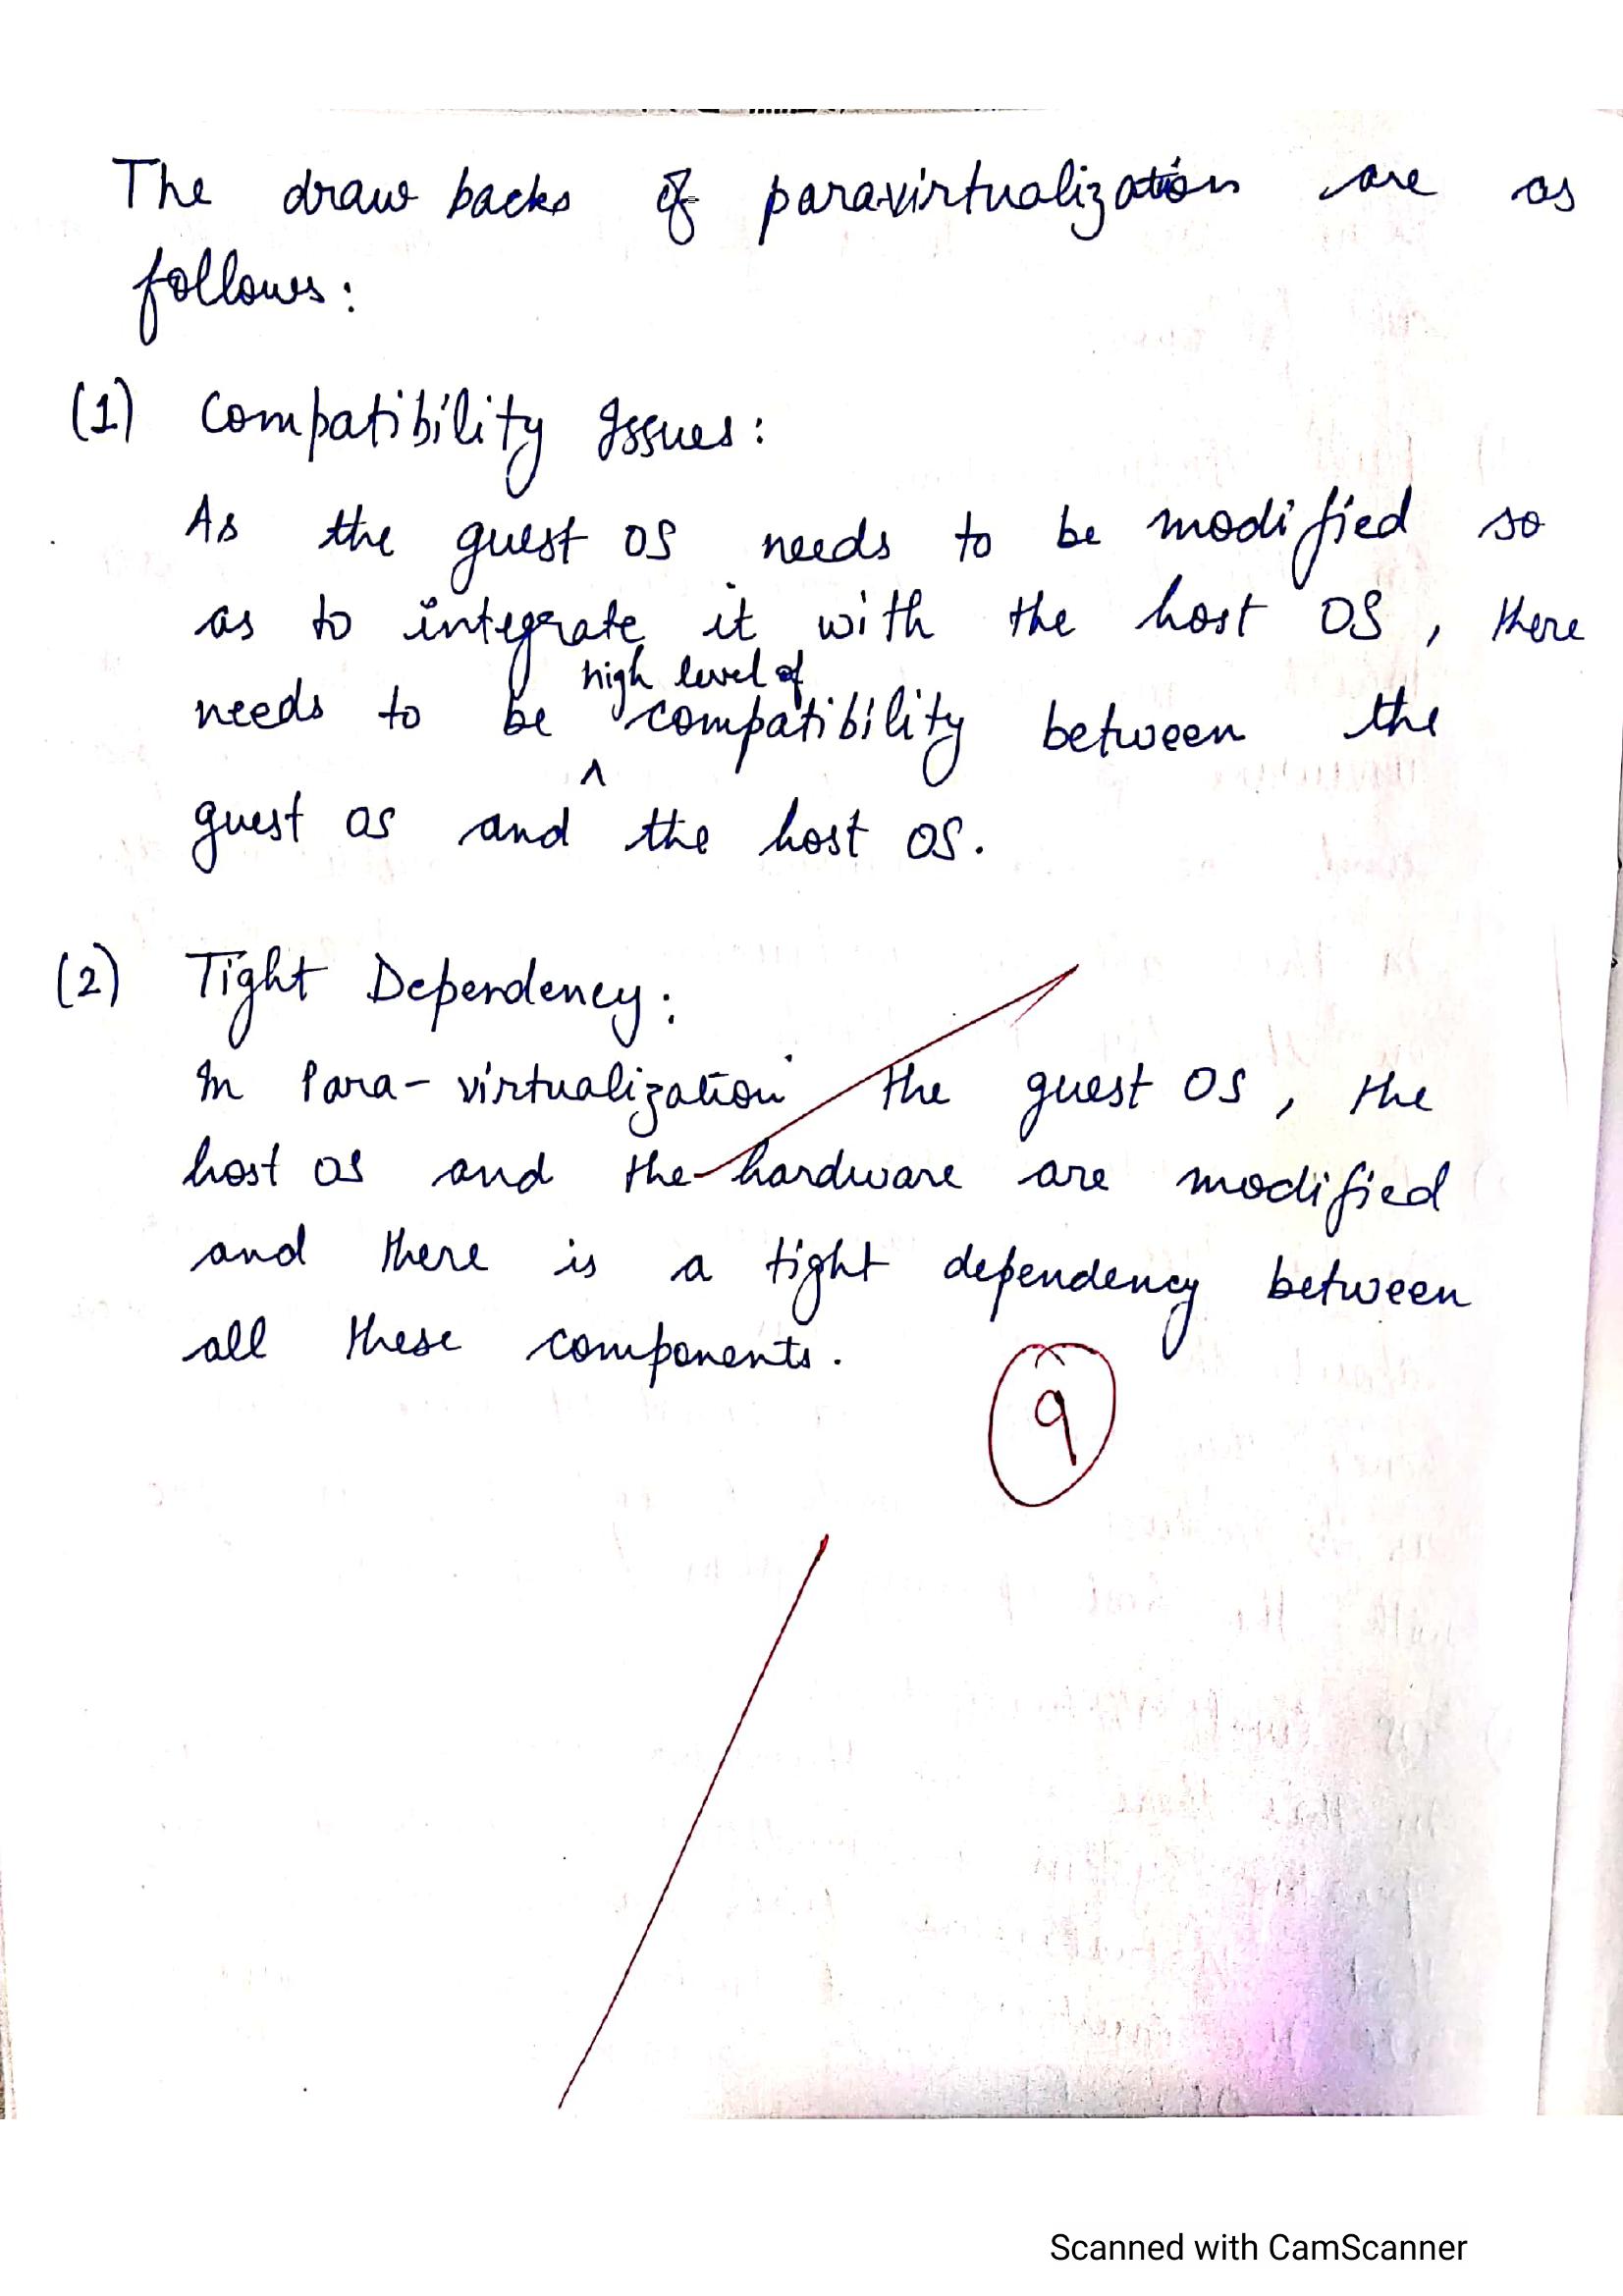 The draw backs of paravirtualization are as
follows:
(1) Compatibility Issues:
As the guest OS needs to be modified so
as to integrate it with the host OS, there
high level of
needs to be ^ compatibility between the
guest OS and the host OS.
(2) Tight Dependency:
In Para-virtualization the guest OS, the
host OS and the hardware are modified
and there is a tight dependency between
all these components.
9
Scanned with CamScanner